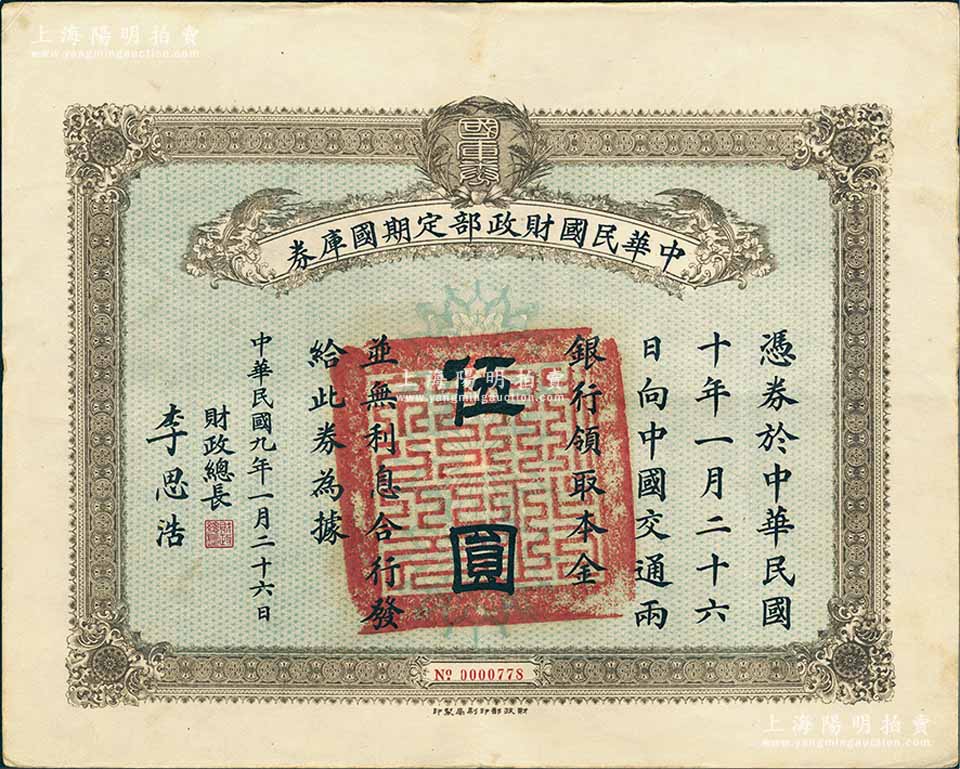 上海陽明拍賣
www.yangmingauction.com
國庫券
中華民國財政部定期國庫券
憑券於中華民國
十年一月二十六
日向中國交通兩
銀行領取本金
伍圓
並無利息合行發
給此券為據
中華民國九年一月二十六日
財政總長
李思浩
上海陽明拍賣
www.yangmingauction.com
No. 0000778
財政部印刷局製印
上海陽明拍賣
www.yangmingauction.com